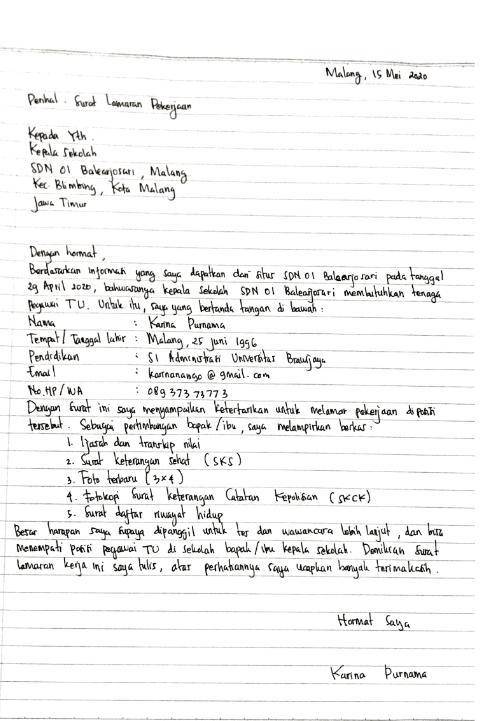 Malang, 15 Mei 2020
Perihal : Surat Lamaran Pekerjaan
Kepada Yth.
Kepala Sekolah
SDN 01 Balearjosari, Malang
Kec. Blimbing, Kota Malang
Jawa Timur
Dengan hormat,
Berdasarkan informasi yang saya dapatkan dari situs SDN 01 Balearjosari pada tanggal
29 April 2020, bahwasanya kepala sekolah SDN 01 Balearjosari membutuhkan tenaga
pegawai TU. Untuk itu, saya yang bertanda tangan di bawah :
Nama : Karina Purnama
Tempat / Tanggal lahir : Malang, 25 Juni 1996
Pendidikan : S1 Administrasi Universitas Brawijaya
Email : @gmail.com
No.HP/WA : 089 373 73773
Dengan surat ini saya menyampaikan ketertarikan untuk melamar pekerjaan di posisi
tersebut. Sebagai pertimbangan bapak/ibu, saya melampirkan berkas :
1. Ijazah dan transkip nilai
2. Surat keterangan sehat (SKS)
3. Foto terbaru (3x4)
4. Fotokopi Surat Keterangan Catatan Kepolisian (SKCK)
5. Surat daftar riwayat hidup
Besar harapan saya supaya dipanggil untuk tes dan wawancara lebih lanjut, dan bisa
menempati posisi pegawai TU di sekolah bapak/ibu kepala sekolah. Demikian surat
lamaran kerja ini saya tulis, atas perhatiannya saya ucapkan banyak terimakasih.
Hormat Saya
Karina Purnama